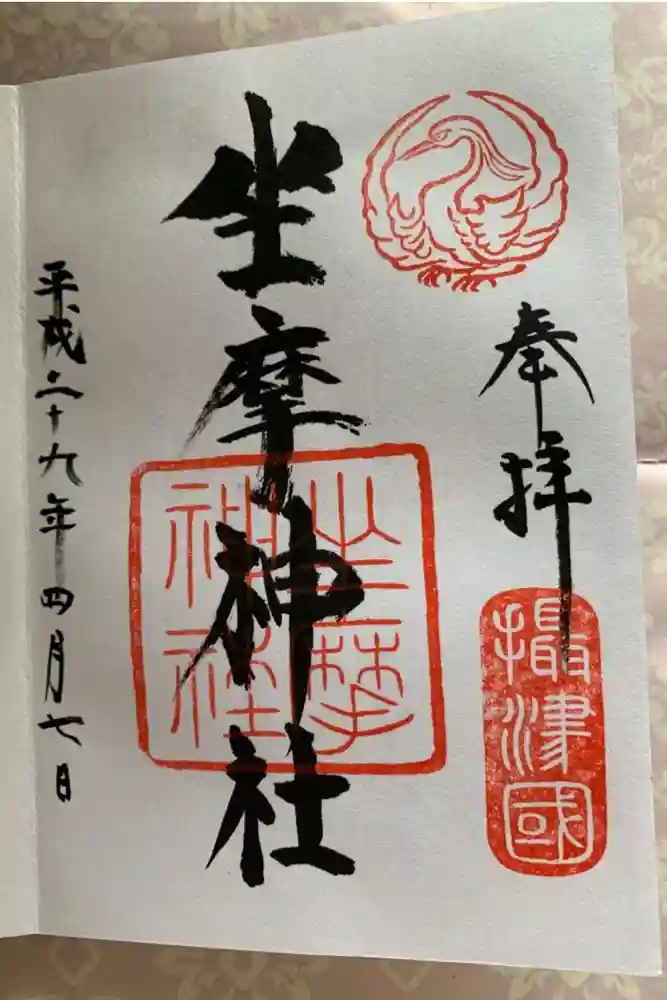 奉拝
摂津國
坐摩神社
坐摩
神社
平成二十九年四月七日